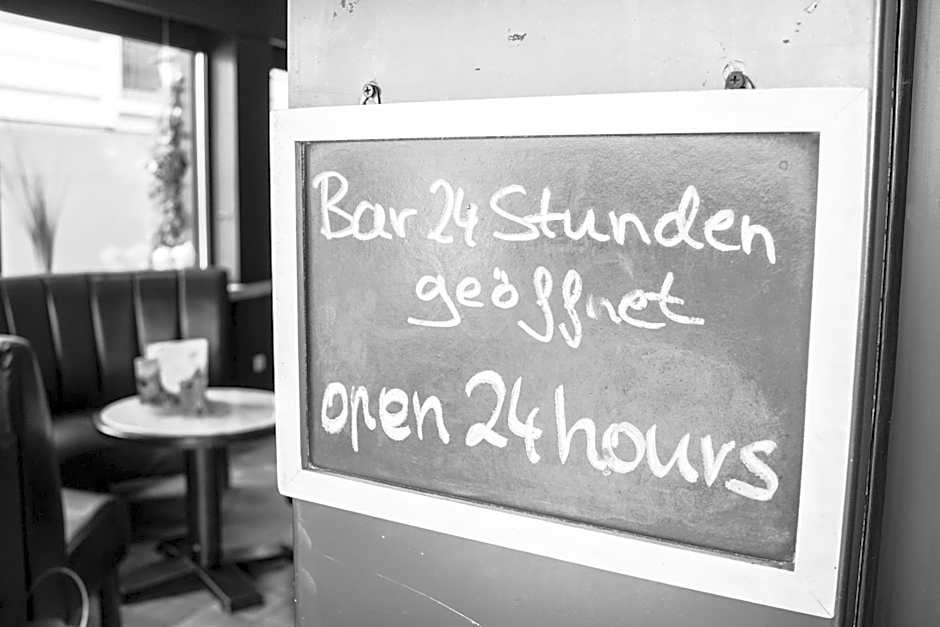 Bar 24 Stunden
geöffnet
open 24 hours